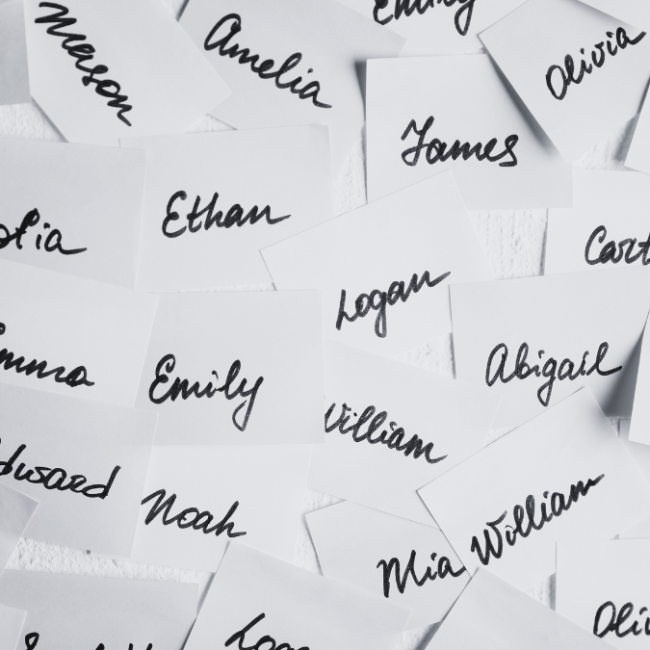 Emily
Mason
Amelia
Olivia
James
Ethan
ofia
Cart
Logan
mma
Emily
Abigail
William
dward
Noah
William
Mia
Oli
Loga